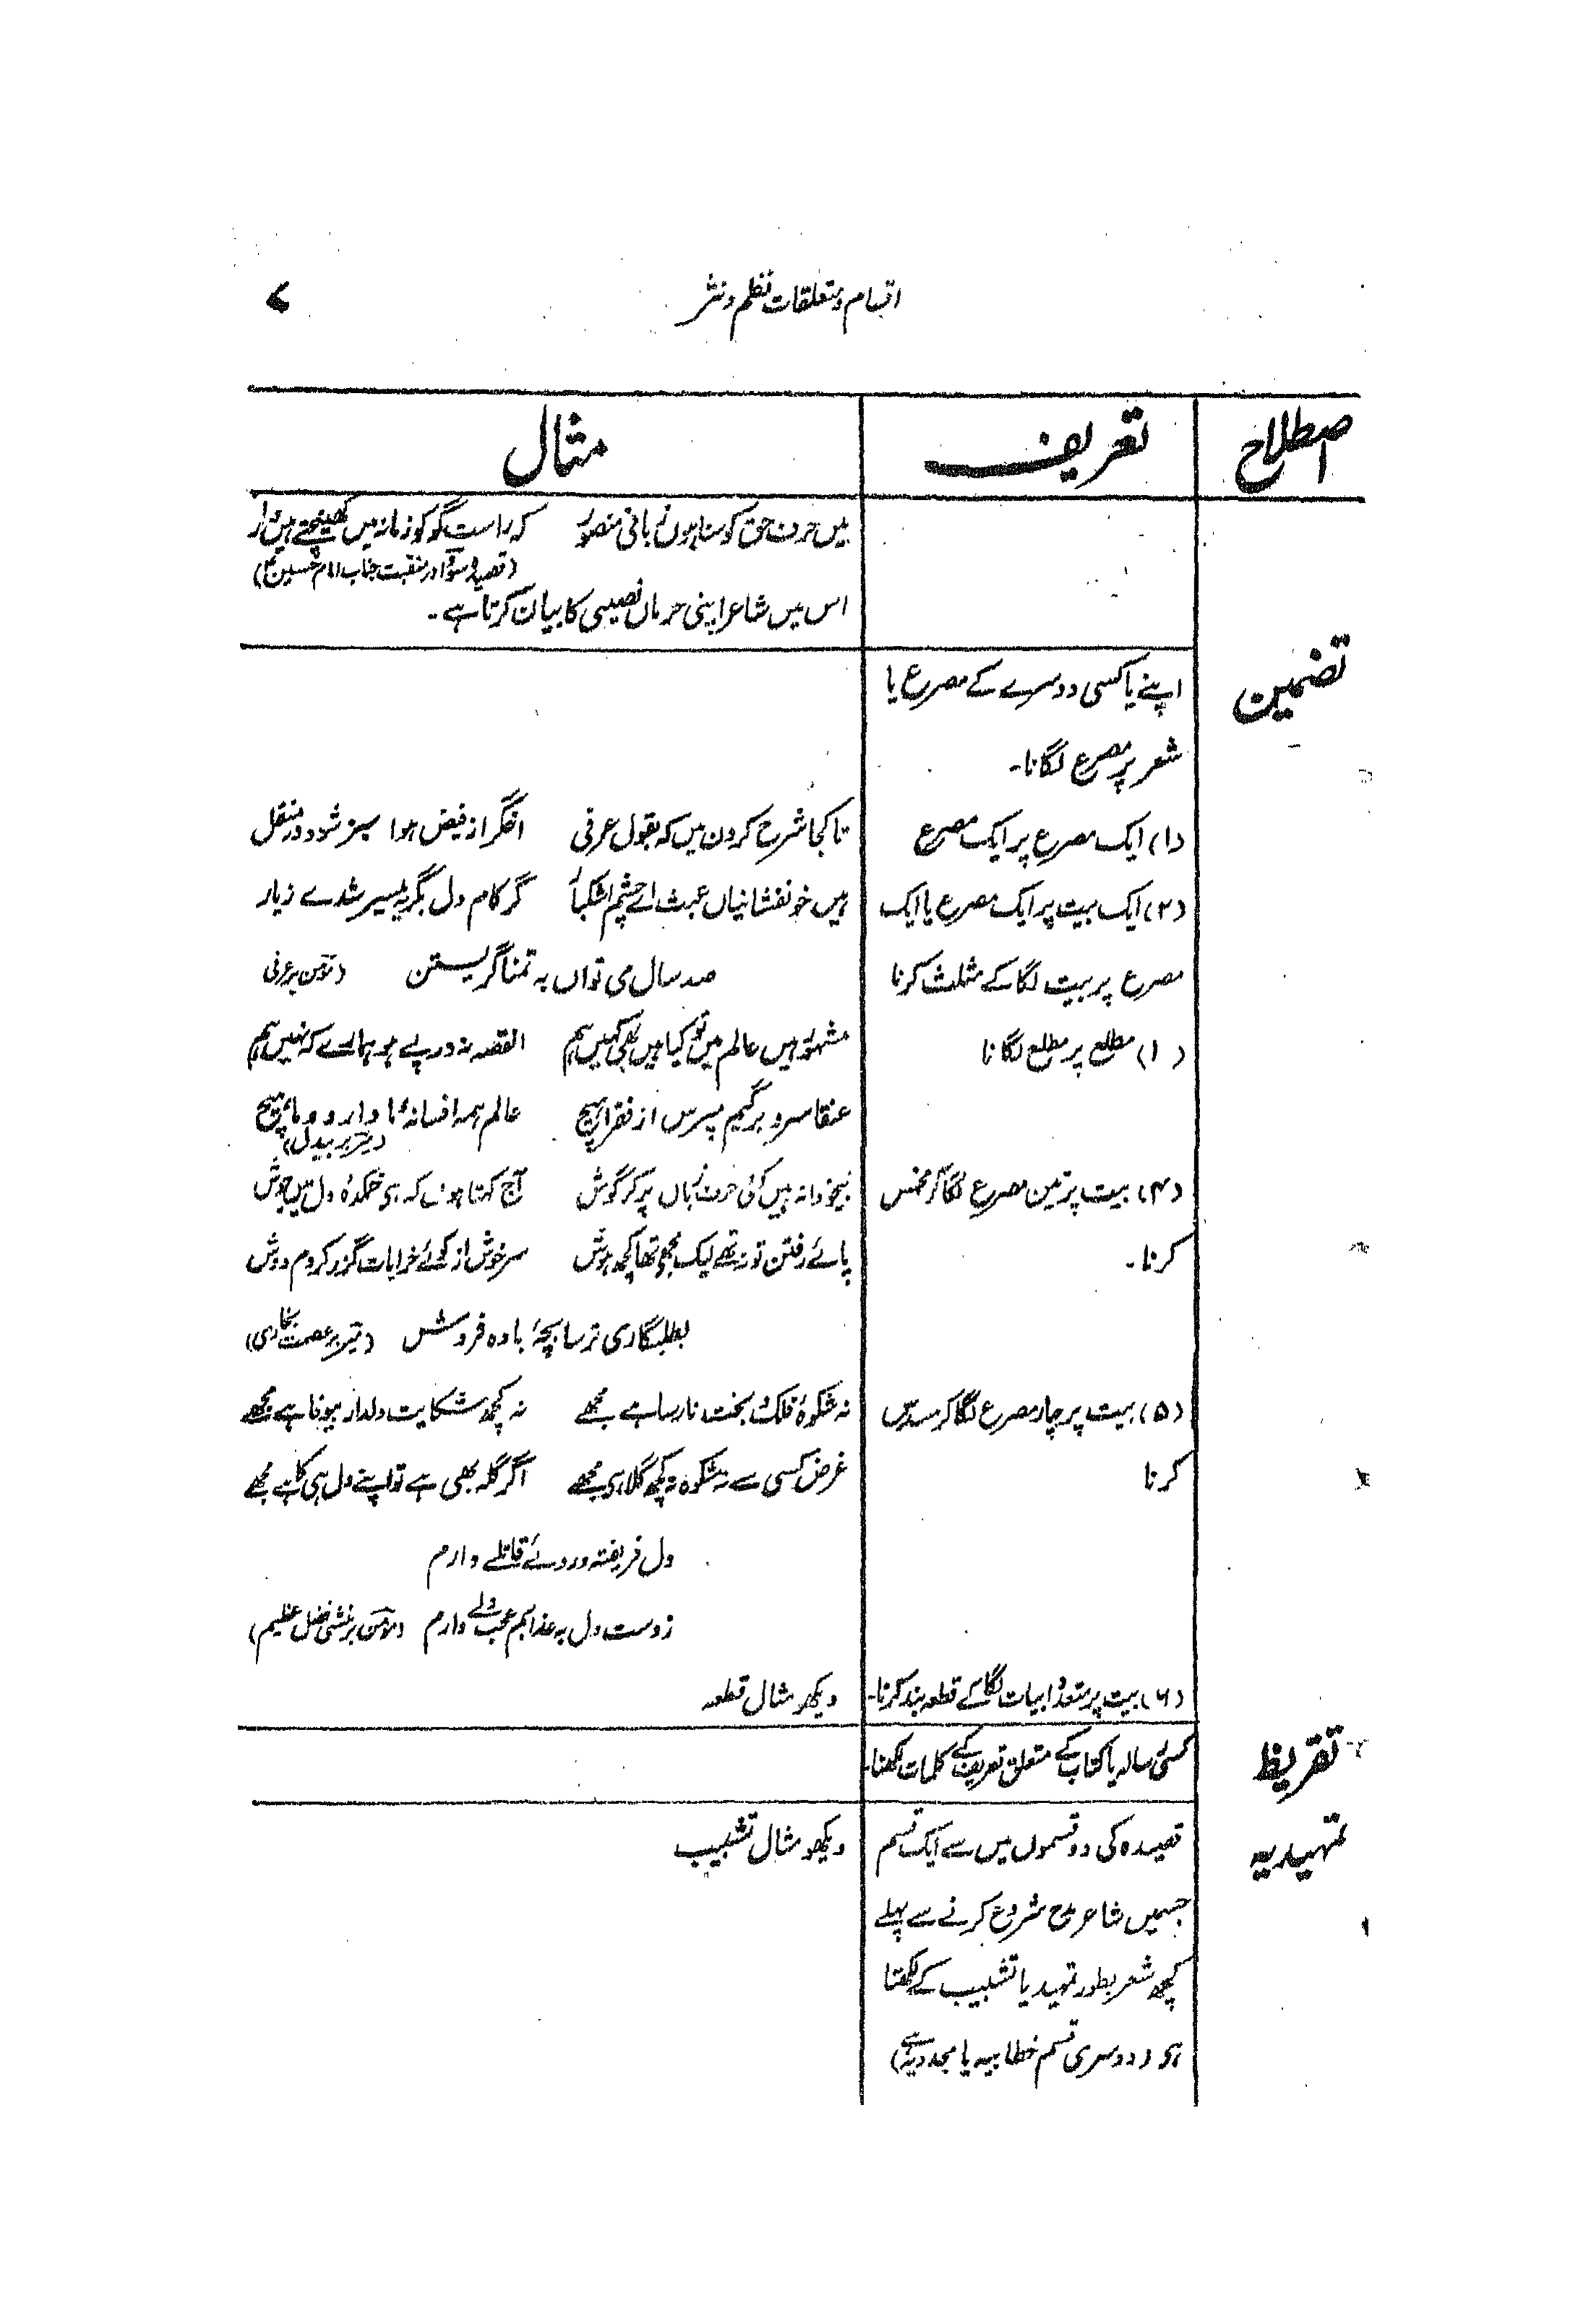 اقسام و متعلقات نظم و نثر
۷
اصطلاح تعریف مثال
میں حرف حق کو سنا ہوں زبانی منصور کہ راست گو کو زمانہ میں کھینچتے ہیں دار
(قصیدہ سودا در منقبت جناب امام حسین)
اس میں شاعر اپنی حرماں نصیبی کا بیان کرتا ہے۔
تضمین اپنے یا کسی دوسرے کے مصرع یا
شعر پر مصرع لگانا۔
(۱) ایک مصرع پر ایک مصرع تا کجا شرح کروں میں کہ بقول عرفی اخگر از فیض ہوا سبز شود در منقل
(۲) ایک بیت پر ایک مصرع یا ایک ہیں خونفشانیاں عبث اے چشم اشکبار گر کام دل بگریہ میسر شدے زیار
مصرع پر بیت لگا کے مثلث کرنا صد سال می تواں بہ تمنا گریستن (مومن بر عرفی
(۱) مطلع پر مطلع لگانا مشہور ہیں عالم میں تو کیا ہیں بھی کہیں ہم القصہ نہ درپے ہو ہمارے کہ نہیں ہم
عنقا سر و برگیم مپرس از فقرا ہیچ عالم ہمہ افسانۂ ما دارد و ما ہیچ
(میر بر بیدل)
(۴) بیت پر تین مصرع لگا کر مخمس بیخودانہ ہیں کئی حرف زباں پر کر گوش آج کہتا ہوں کہ ہی خمکدۂ دل میں جوش
کرنا۔ پائے رفتن تو نہ تھے لیک مجھے تھا کچھ ہوش سرخوش از کوئے خرابات گزر کردم دوش
بطلبگاری ترسا بچۂ بادہ فروش (میر بر عصمت بخاری)
(۵) بیت پر چار مصرع لگا کر مسدس نہ شکوۂ فلک و بخت نارسا ہے مجھے نہ کچھ شکایت دلدار بیوفا ہے مجھے
کرنا غرض کسی سے نہ شکوہ نہ کچھ گلا ہی مجھے اگر گلہ بھی ہے تو اپنے دل ہی کا ہے مجھے
دل فریفتہ در روئے قاتلے دارم
زدست دل بہ عذابم عجب دلے دارم (مومن بر منشی فضل عظیم)
(۶) بیت پر متعدد ابیات لگا کے قطعہ بند کرنا۔ دیکھو مثال قطعہ
تقریظ کسی رسالہ یا کتاب کے متعلق تعریف کے کلمات لکھنا۔
تمہیدیہ قصیدہ کی دو قسموں میں سے ایک قسم دیکھو مثال تشبیب
جسمیں شاعر مدح شروع کرنے سے پہلے
کچھ شعر بطور تمہید یا تشبیب کے لکھتا
ہی (دوسری قسم خطابیہ یا مجددیہ ہے)